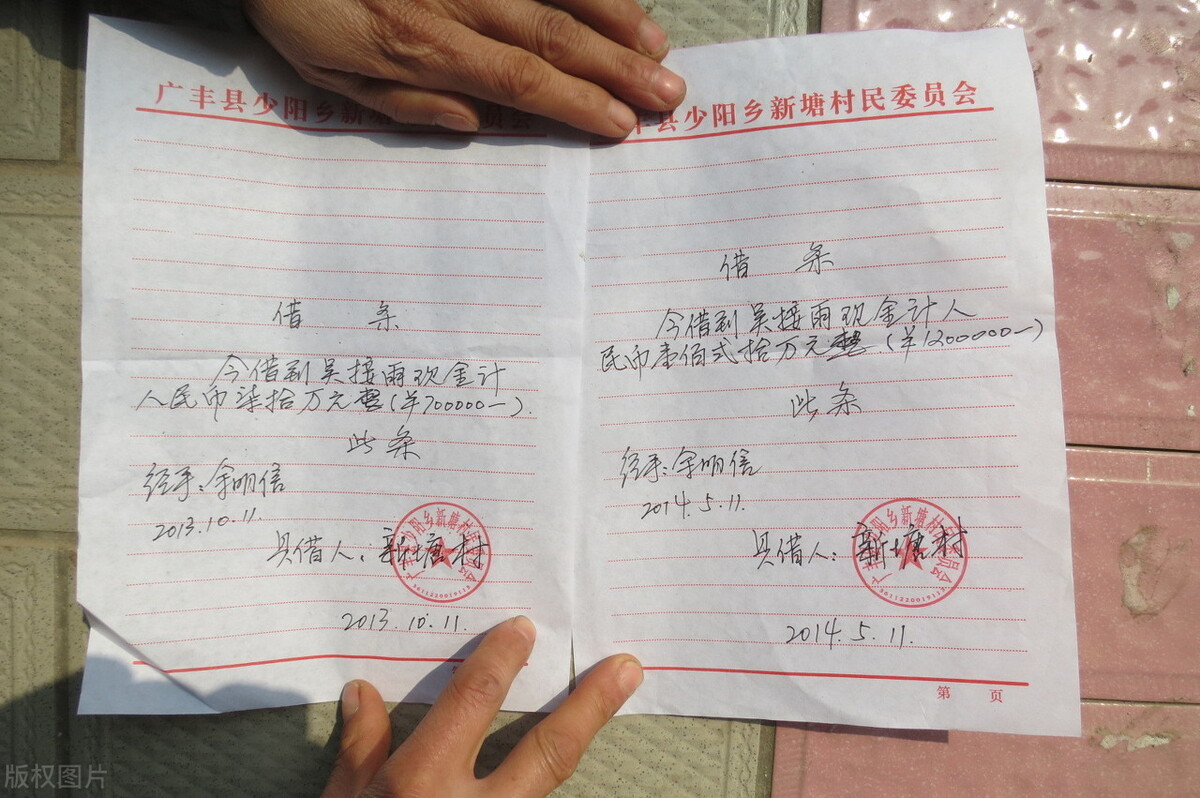 广丰县少阳乡新塘村民委员会
借条
今借到吴接雨现金计
人民币柒拾万元整(¥700000—).
此条
经手:余明信
2013.10.11.
具借人:新塘村
2013.10.11.
丰县少阳乡新塘村民委员会
借条
今借到吴接雨现金计人
民币壹佰弍拾万元整(¥1200000—)
此条
经手:余明信
2014.5.11.
具借人:新塘村
2014.5.11.
第 页
版权图片